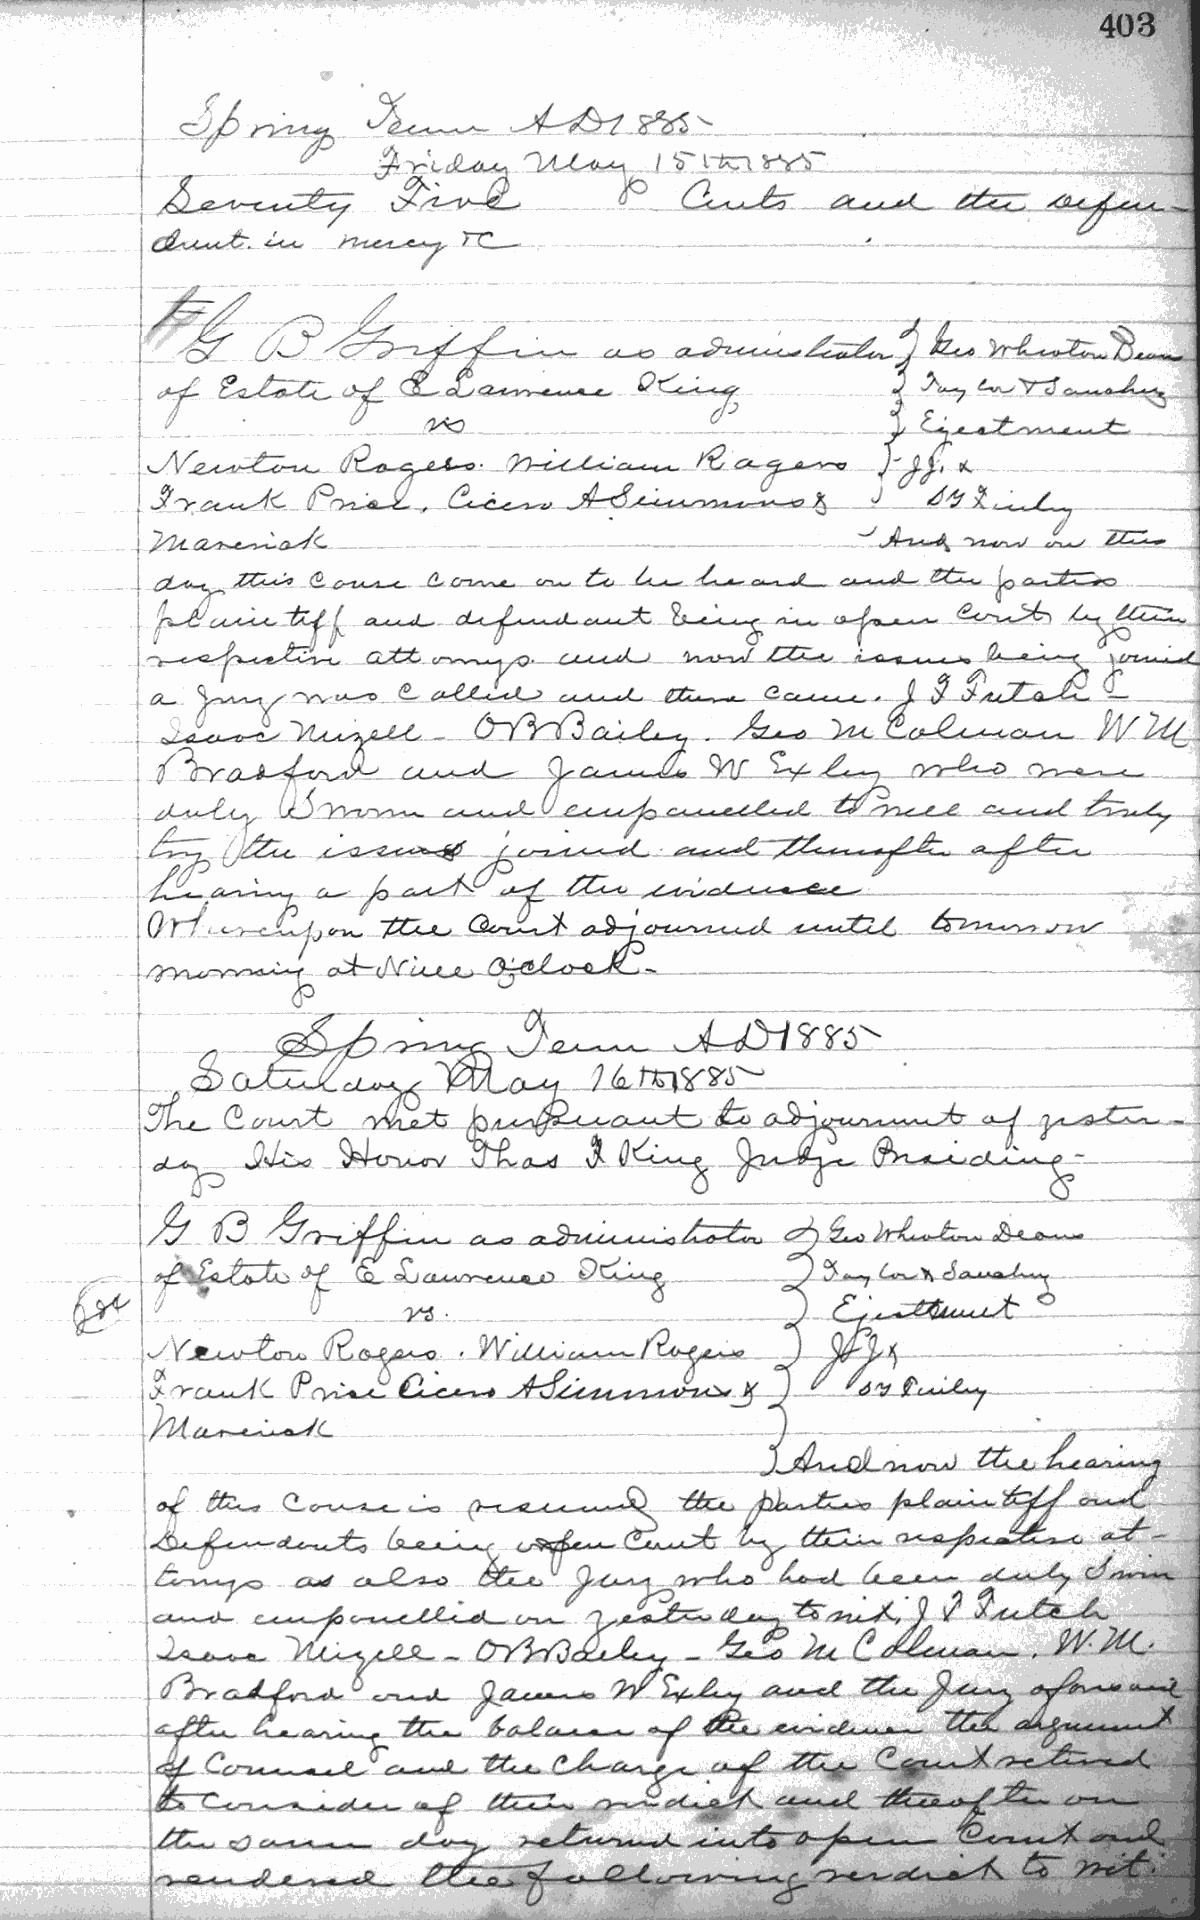 403
Spring Term A D 1885
Friday May 15th 1885
Seventy Five Cents and the Defen-
dant in mercy &c
G B Griffin as administrator } Geo Wheaton Deans
of Estate of E Lawrence King } Taylor & Sanchez
vs } Ejectment
Newton Rogers. William Rogers }
Frank Price. Cicero A Simmons & } Finley
Maverick And now on this
day this Cause Came on to be heard and the parties
plaintiff and defendant being in open Court by their
respective attornys and now the issues being joined
a Jury was Called and there came. J F Futch -
Isaac Mizell - O B Bailey. Geo M Colman W M
Bradford and James W Exley who were
duly Sworn and empanelled to well and truly
try the issues joined and thereafter after
hearing a part of the evidence
Whereupon the Court adjourned until tomorrow
morning at Nine O'clock -
Spring Term A D 1885
Saturday May 16th 1885
The Court met pursuant to adjournment of yester-
day His Honor Thas F King Judge Presiding -
G B Griffin as administrator } Geo Wheaton Deans
of Estate of E Lawrence King } Taylor & Sanchez
vs. } Ejectment
Newton Rogers. William Rogers }
Frank Price Cicero A Simmons & } Finley
Maverick }
} And now the hearing
of this Cause is resumed the parties plaintiff and
Defendants being open Court by their respective at-
tornys as also the Jury who had been duly Sworn
and empanelled on yesterday to wit, J F Futch
Isaac Mizell - O B Bailey - Geo M Colman. W. M.
Bradford and James W Exley and the Jury aforesaid
after hearing the balance of the evidence the argument
of Counsel and the Charge of the Court retired
to Consider of their verdict and thereafter on
the same day returned into open Court and
rendered the following verdict to wit: